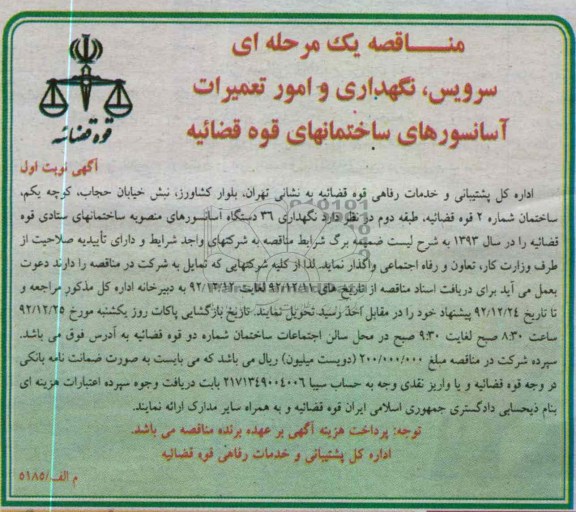 مناقصه یک مرحله ای
سرویس، نگهداری و امور تعمیرات
آسانسورهای ساختمانهای قوه قضائیه
قوه قضائیه
آگهی نوبت اول
اداره کل پشتیبانی و خدمات رفاهی قوه قضائیه به نشانی تهران، بلوار کشاورز، نبش خیابان حجاب، کوچه یکم،
ساختمان شماره ۲ قوه قضائیه، طبقه دوم در نظر دارد نگهداری ۳۶ دستگاه آسانسورهای منصوبه ساختمانهای ستادی قوه
قضائیه را در سال ۱۳۹۳ به شرح لیست ضمیمه برگ شرایط مناقصه به شرکتهای واجد شرایط و دارای تأییدیه صلاحیت از
طرف وزارت کار، تعاون و رفاه اجتماعی واگذار نماید. لذا از کلیه شرکتهایی که تمایل به شرکت در مناقصه را دارند دعوت
بعمل می آید برای دریافت اسناد مناقصه از تاریخ های ۹۲/۱۲/۱۱ لغایت ۹۲/۱۲/۱۲ به دبیرخانه اداره کل مذکور مراجعه و
تا تاریخ ۹۲/۱۲/۲۴ پیشنهاد خود را در مقابل اخذ رسید تحویل نمایند. تاریخ بازگشایی پاکات روز یکشنبه مورخ ۹۲/۱۲/۲۵
ساعت ۸:۳۰ صبح لغایت ۹:۳۰ صبح در محل سالن اجتماعات ساختمان شماره دو قوه قضائیه به آدرس فوق می باشد.
سپرده شرکت در مناقصه مبلغ ۲۰۰/۰۰۰/۰۰۰ (دویست میلیون) ریال می باشد که می بایست به صورت ضمانت نامه بانکی
در وجه قوه قضائیه و یا واریز نقدی وجه به حساب سیبا ۲۱۷۱۳۴۹۰۰۴۰۰۶ بابت دریافت وجوه سپرده اعتبارات هزینه ای
بنام ذیحسابی دادگستری جمهوری اسلامی ایران قوه قضائیه و به همراه سایر مدارک ارائه نمایند.
توجه: پرداخت هزینه آگهی بر عهده برنده مناقصه می باشد.
اداره کل پشتیبانی و خدمات رفاهی قوه قضائیه
م الف/۵۱۸۵